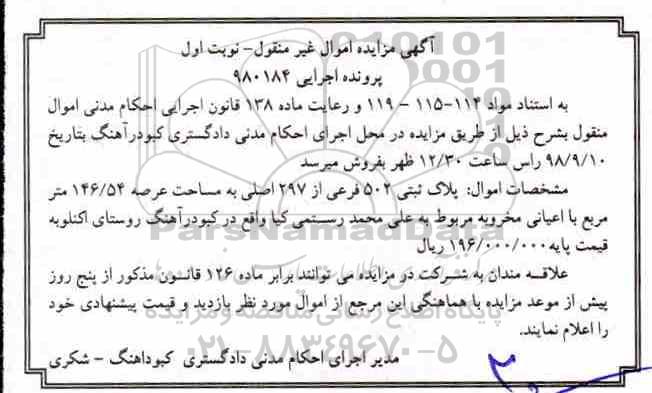 آگهی مزایده اموال غیر منقول- نوبت اول
پرونده اجرایی ۹۸۰۱۸۴
به استناد مواد ۱۱۴-۱۱۵ - ۱۱۹ و رعایت ماده ۱۳۸ قانون اجرایی احکام مدنی اموال
منقول بشرح ذیل از طریق مزایده در محل اجرای احکام مدنی دادگستری کبودرآهنگ بتاریخ
۹۸/۹/۱۰ راس ساعت ۱۲/۳۰ ظهر بفروش میرسد
مشخصات اموال: پلاک ثبتی ۵۰۲ فرعی از ۲۹۷ اصلی به مساحت عرصه ۱۴۶/۵۴ متر
مربع با اعیانی مخروبه مربوط به علی محمد رستمی کیا واقع در کبودرآهنگ روستای اکنلوبه
قیمت پایه ۱۹۶/۰۰۰/۰۰۰ ریال
علاقه مندان به شرکت در مزایده می توانند برابر ماده ۱۲۶ قانون مذکور از پنج روز
پیش از موعد مزایده با هماهنگی این مرجع از اموال مورد نظر بازدید و قیمت پیشنهادی خود
را اعلام نمایند.
مدیر اجرای احکام مدنی دادگستری کبوداهنگ - شکری
ParsNamadData
پایگاه اطلاع رسانی مناقصه و مزایده
۰۲۱-۸۸۳۴۹۶۷۰-۵